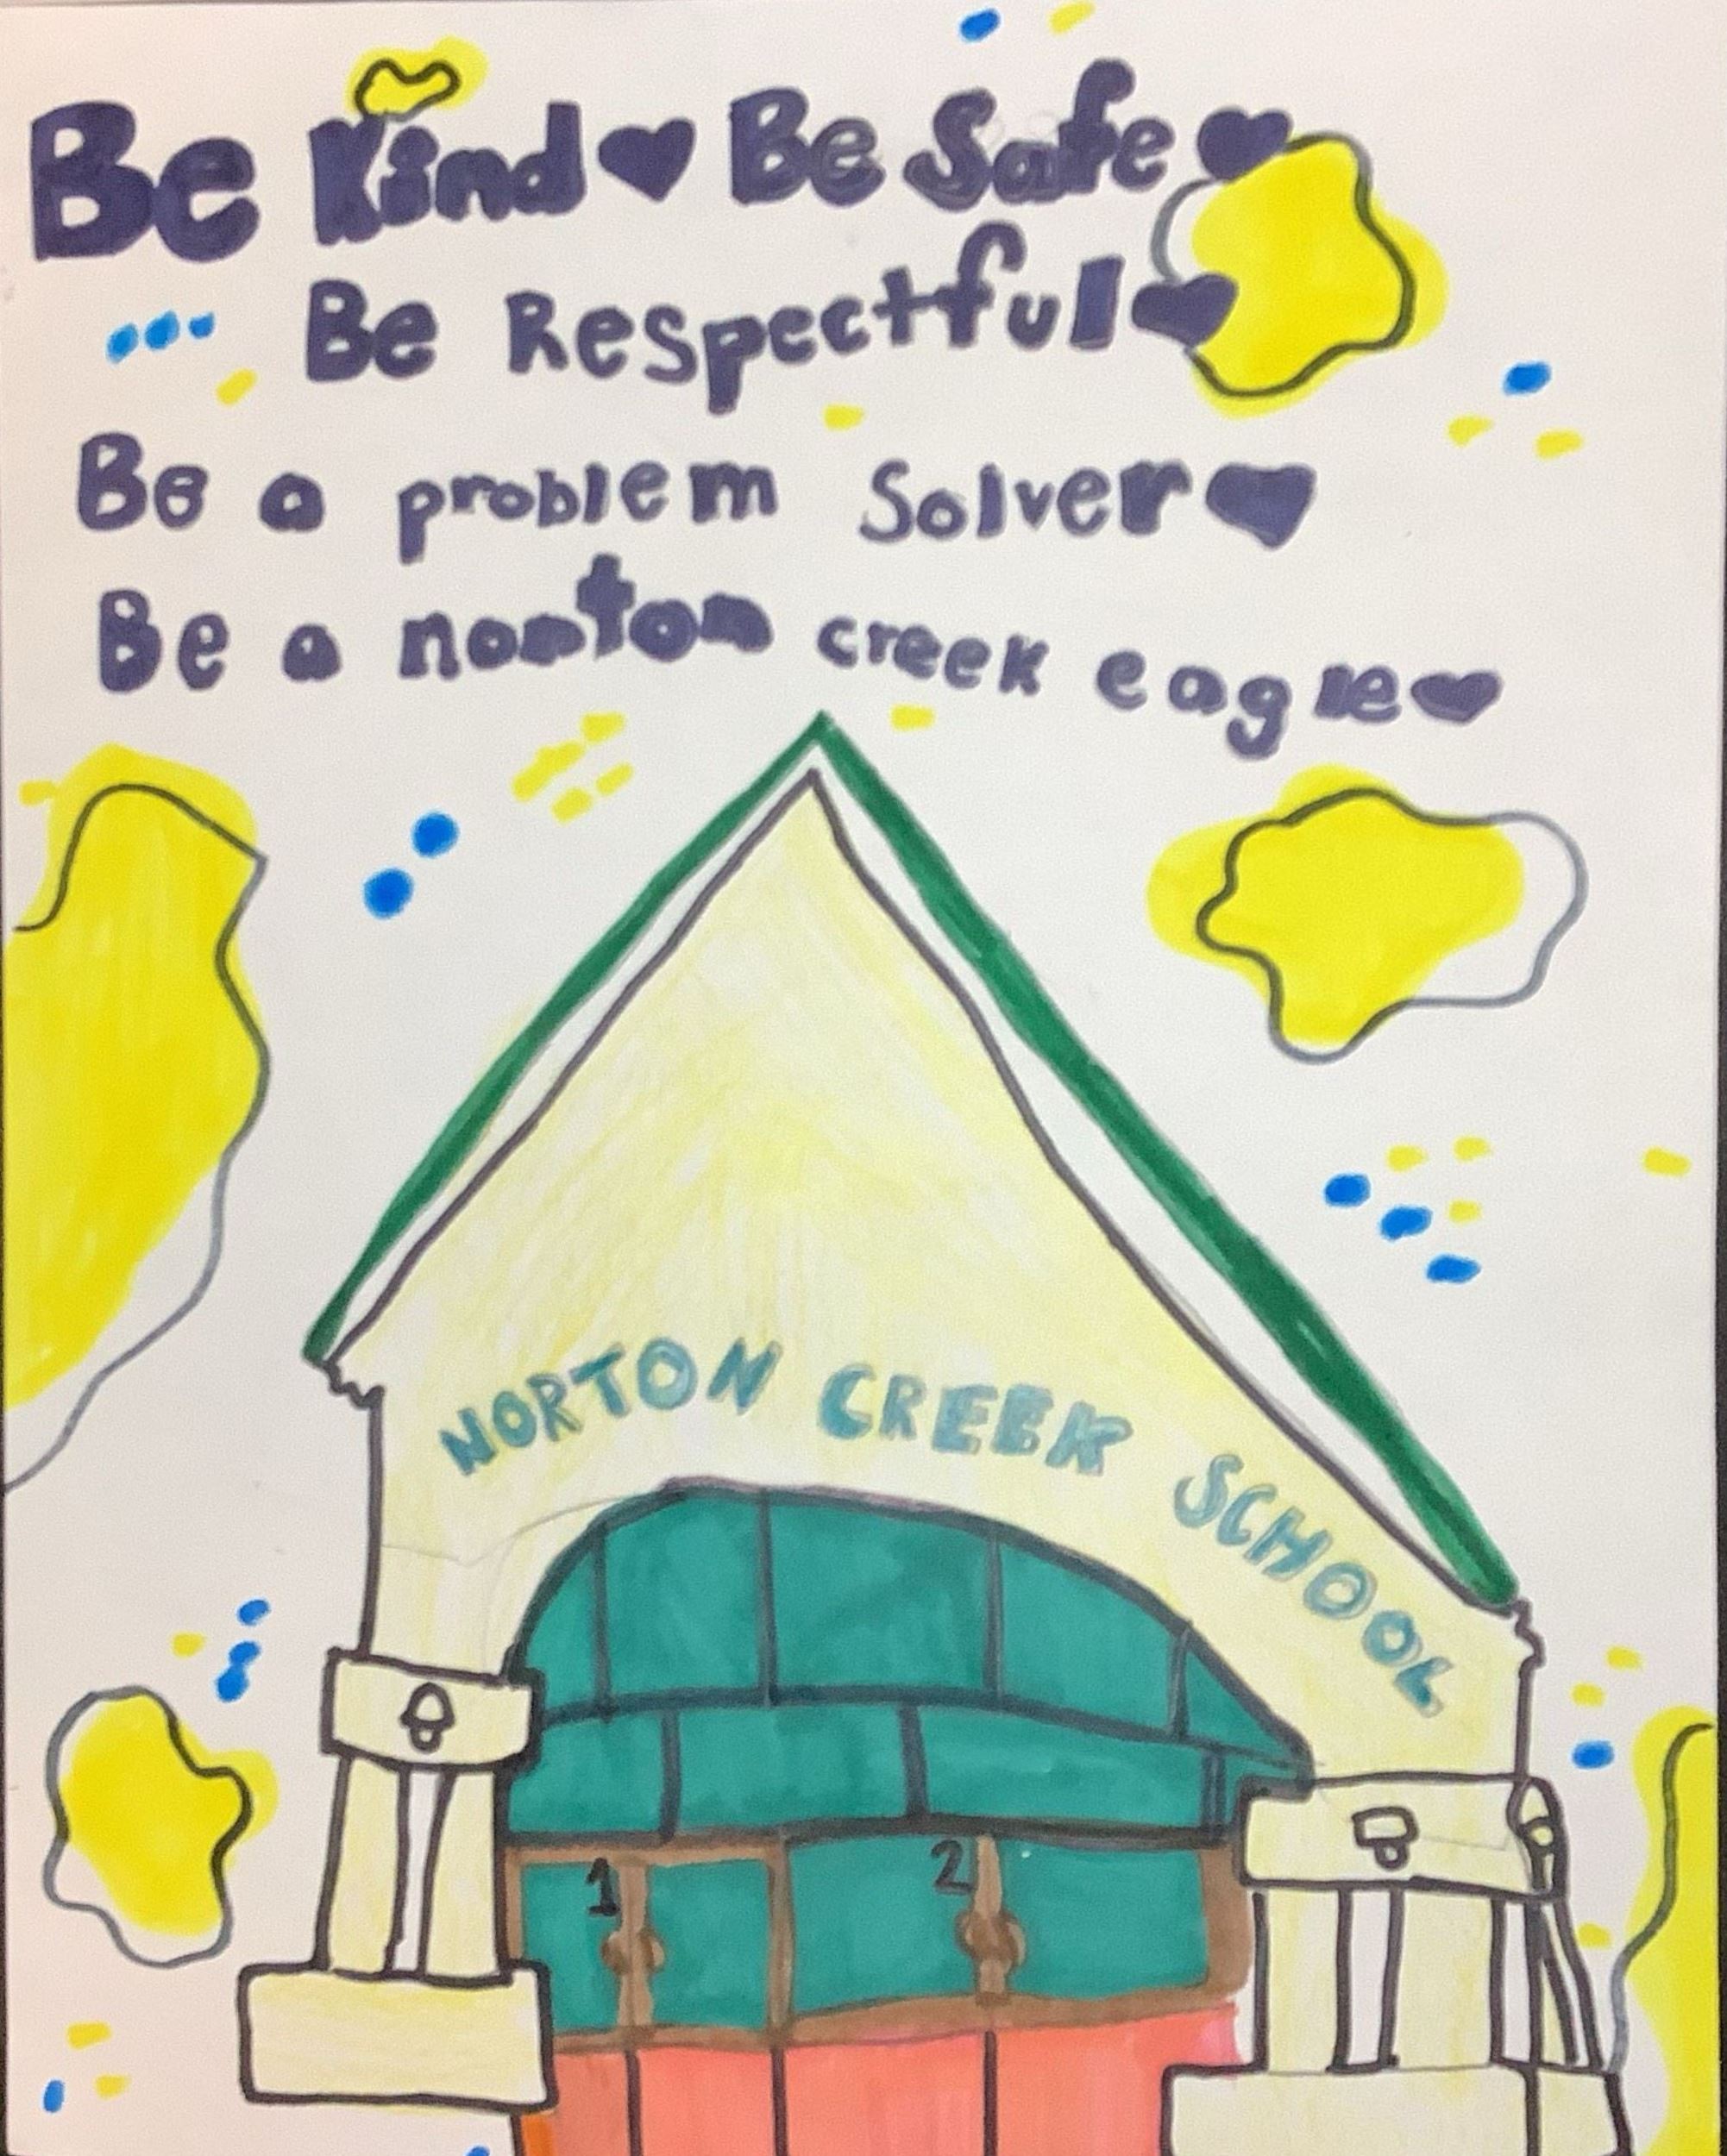 Be Kind♥ Be Safe♥
Be Respectful♥
Be a problem Solver♥
Be a norton creek eagle♥
NORTON CREEK SCHOOL
1 2